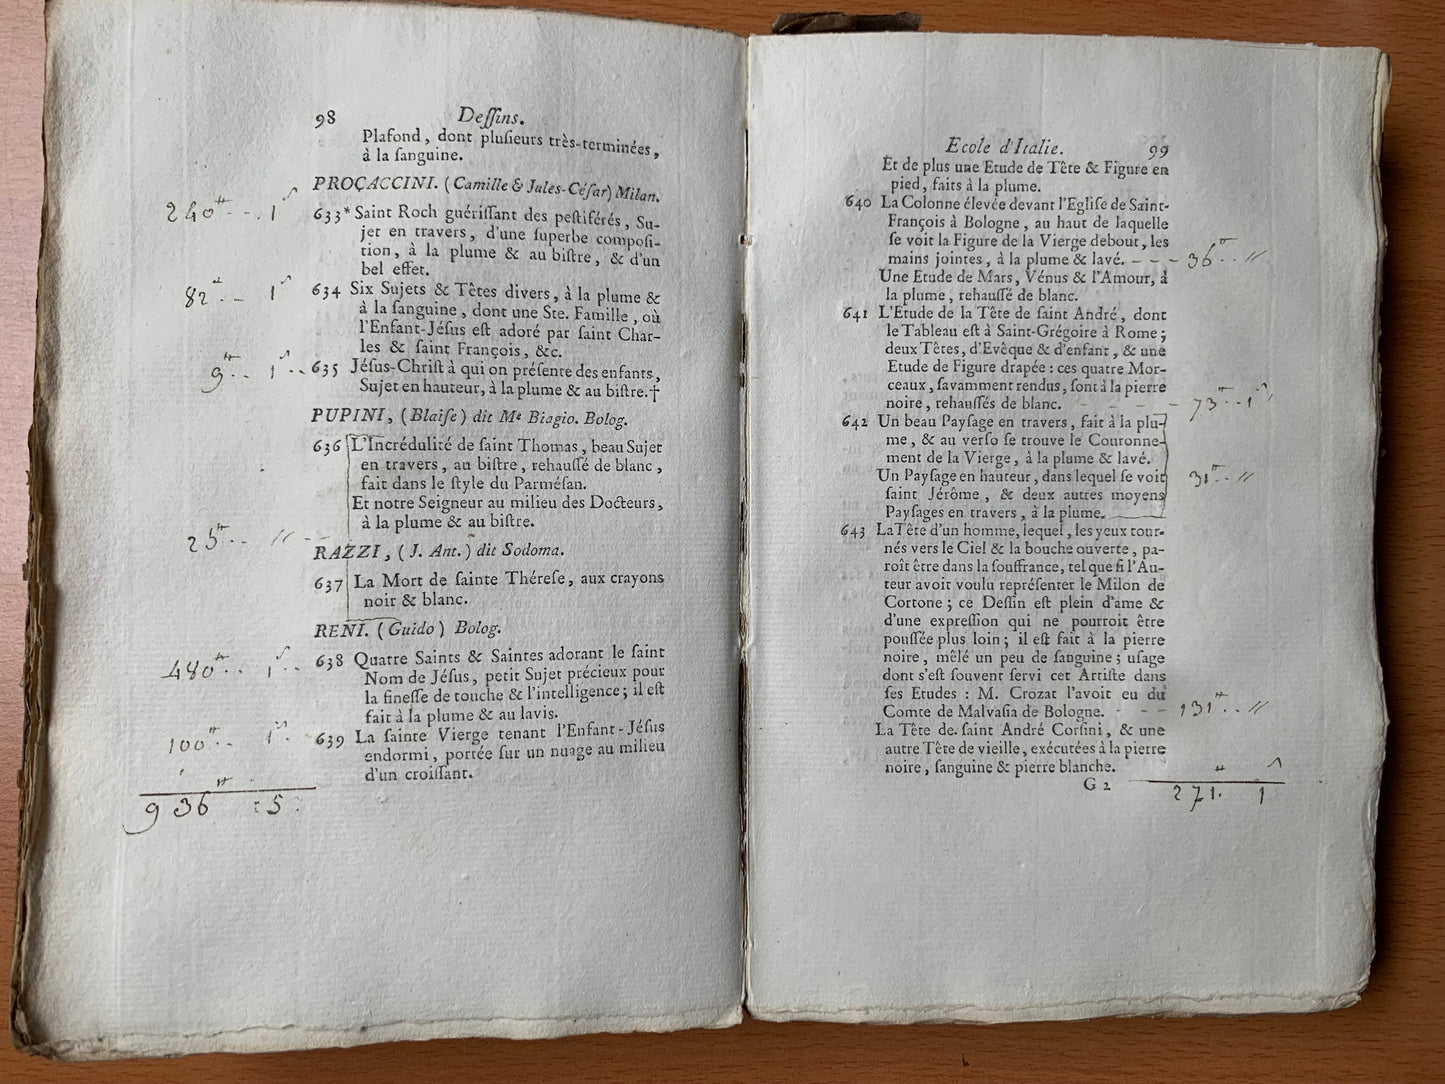 98 Deſſins.
Plafond, dont pluſieurs très-terminées,
à la ſanguine.
PROÇACCINI. (Camille & Jules-Céſar) Milan.
240# -- . 1ſ
633* Saint Roch guériſſant des peſtiférés, Su-
jet en travers, d'une ſuperbe compoſi-
tion, à la plume & au biſtre, & d'un
bel effet.
82# . - 1ſ
634 Six Sujets & Têtes divers, à la plume &
à la ſanguine, dont une Ste. Famille, où
l'Enfant-Jéſus eſt adoré par ſaint Char-
les & ſaint François, &c.
9# . . 1ſ . --
635 Jéſus-Chriſt à qui on préſente des enfants,
Sujet en hauteur, à la plume & au biſtre.†
PUPINI, (Blaiſe) dit Me Biagio. Bolog.
636 L'Incrédulité de ſaint Thomas, beau Sujet
en travers, au biſtre, rehauſſé de blanc,
fait dans le ſtyle du Parméſan.
Et notre Seigneur au milieu des Docteurs,
à la plume & au biſtre.
25# . -- "
RAZZI, (J. Ant.) dit Sodoma.
637 La Mort de ſainte Théreſe, aux crayons
noir & blanc.
RENI. (Guido) Bolog.
480# . . 1ſ . --
638 Quatre Saints & Saintes adorant le ſaint
Nom de Jéſus, petit Sujet précieux pour
la fineſſe de touche & l'intelligence; il eſt
fait à la plume & au lavis.
100# . . 1ſ . .
639 La ſainte Vierge tenant l'Enfant-Jéſus
endormi, portée ſur un nuage au milieu
d'un croiſſant.
936# : 5 :
Ecole d'Italie. 99
Et de plus une Etude de Tête & Figure en
pied, faits à la plume.
640 La Colonne élevée devant l'Egliſe de Saint-
François à Bologne, au haut de laquelle
ſe voit la Figure de la Vierge debout, les
mains jointes, à la plume & lavé. - - - 36# . . "
Une Etude de Mars, Vénus & l'Amour, à
la plume, rehauſſé de blanc.
641 L'Etude de la Tête de ſaint André, dont
le Tableau eſt à Saint-Grégoire à Rome;
deux Têtes, d'Evêque & d'enfant, & une
Etude de Figure drapée: ces quatre Mor-
ceaux, ſavamment rendus, ſont à la pierre
noire, rehauſſés de blanc. - - - - 73# . . 1ſ
642 Un beau Payſage en travers, fait à la plu-
me, & au verſo ſe trouve le Couronne-
ment de la Vierge, à la plume & lavé.
Un Payſage en hauteur, dans lequel ſe voit 31# . . "
ſaint Jérôme, & deux autres moyens
Payſages en travers, à la plume.
643 La Tête d'un homme, lequel, les yeux tour-
nés vers le Ciel & la bouche ouverte, pa-
roît être dans la ſouffrance, tel que ſi l'Au-
teur avoit voulu repréſenter le Milon de
Cortone; ce Deſſin eſt plein d'ame &
d'une expreſſion qui ne pourroit être
pouſſée plus loin; il eſt fait à la pierre
noire, mêlé un peu de ſanguine; uſage
dont s'eſt ſouvent ſervi cet Artiſte dans
ſes Etudes: M. Crozat l'avoit eu du
Comte de Malvaſia de Bologne. - - - 131# . . "
La Tête de ſaint André Corſini, & une
autre Tête de vieille, exécutées à la pierre
noire, ſanguine & pierre blanche.
G 2
271# . 1ſ